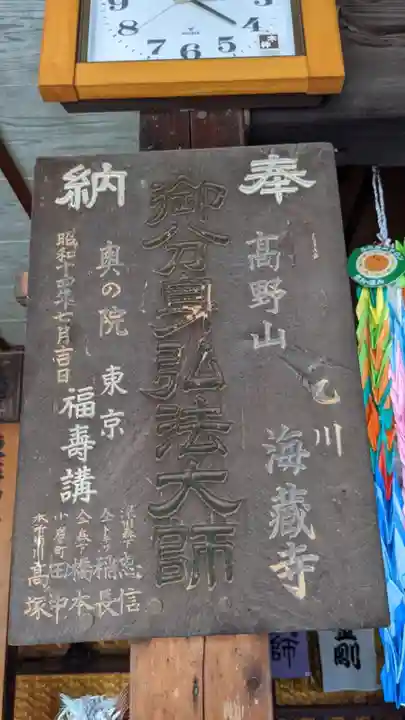 9
8
7
6
5
4
3
奉
納
高野山
乙川
海蔵寺
御分身弘法大師
奥の院
東京
福壽講
昭和十四年七月吉日
忠信
稲長
橋本
小岩町田中
高塚
師
金剛